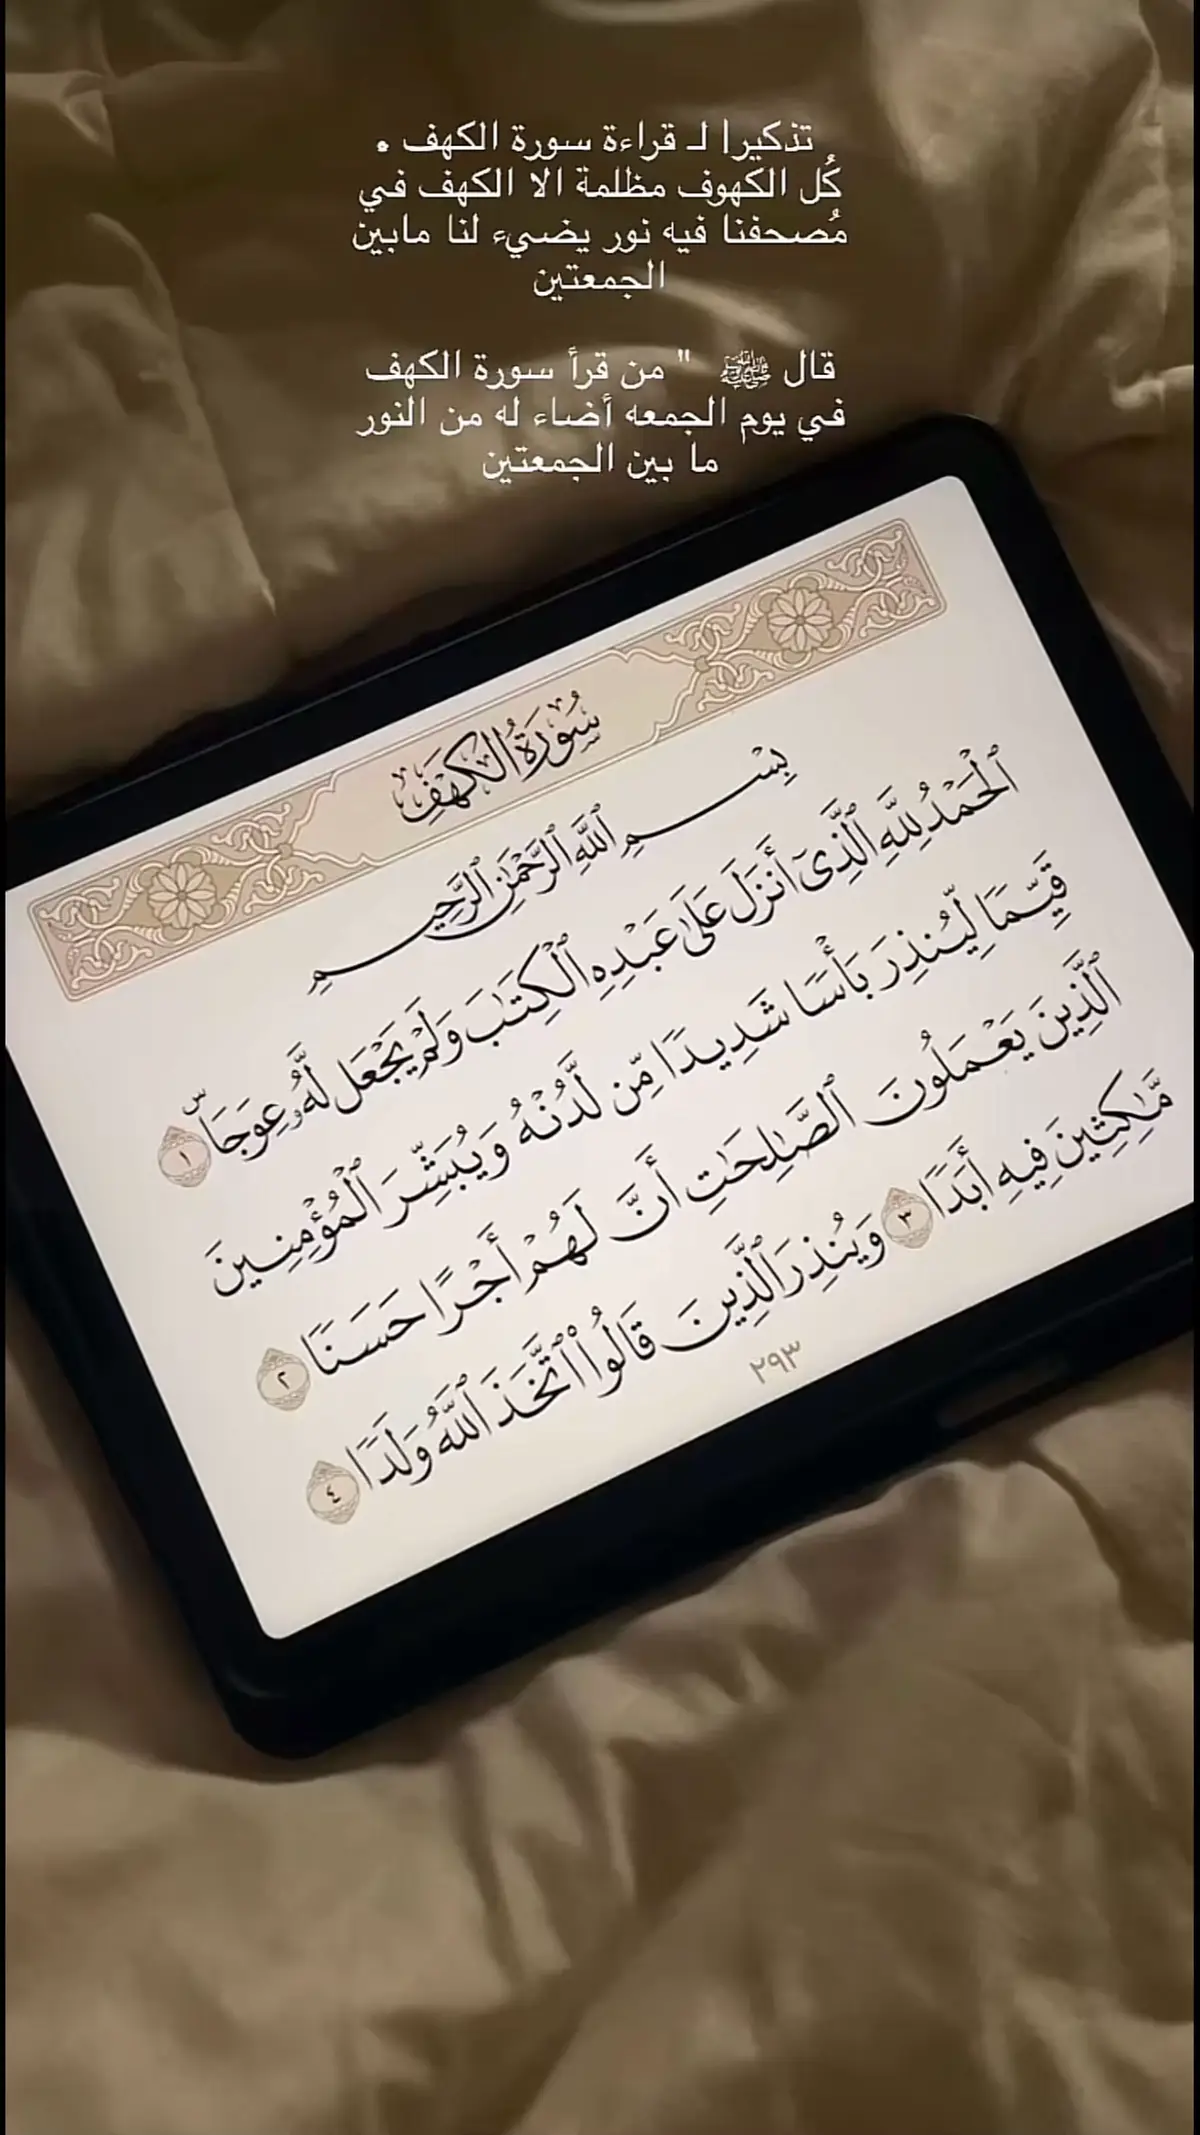 تذكيرا لـ قراءة سورة الكهف •
كُل الكهوف مظلمة الا الكهف في
مُصحفنا فيه نور يضيء لنا مابين
الجمعتين
قال ﷺ " من قرأ سورة الكهف
في يوم الجمعه أضاء له من النور
ما بين الجمعتين
سُورَةُ الكَهۡفِ
بِسۡمِ ٱللَّهِ ٱلرَّحۡمَٰنِ ٱلرَّحِيمِ
ٱلۡحَمۡدُ لِلَّهِ ٱلَّذِيٓ أَنزَلَ عَلَىٰ عَبۡدِهِ ٱلۡكِتَٰبَ وَلَمۡ يَجۡعَل لَّهُۥ عِوَجَاۜ ١
قَيِّمٗا لِّيُنذِرَ بَأۡسٗا شَدِيدٗا مِّن لَّدُنۡهُ وَيُبَشِّرَ ٱلۡمُؤۡمِنِينَ
ٱلَّذِينَ يَعۡمَلُونَ ٱلصَّٰلِحَٰتِ أَنَّ لَهُمۡ أَجۡرًا حَسَنٗا ٢
مَّٰكِثِينَ فِيهِ أَبَدٗا ٣ وَيُنذِرَ ٱلَّذِينَ قَالُواْ ٱتَّخَذَ ٱللَّهُ وَلَدٗا ٤
٢٩٣